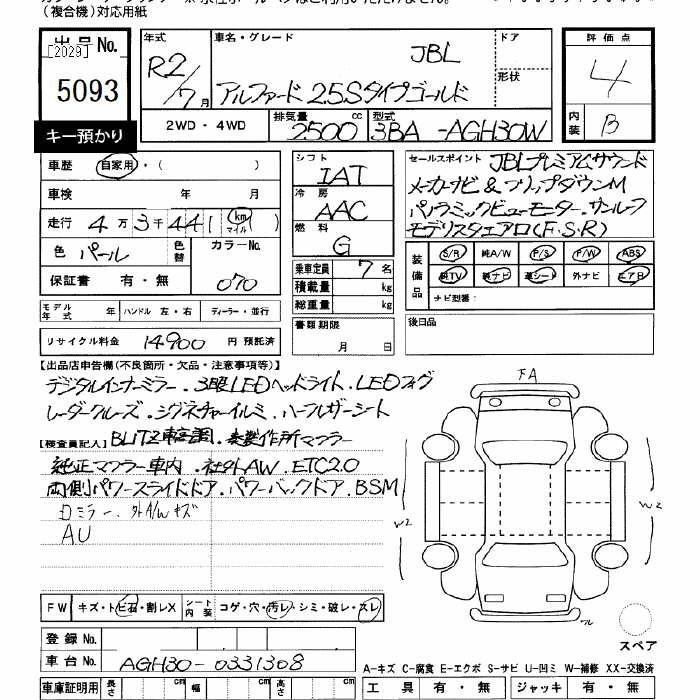 (複合機)対応用紙
出品No.
[2029]
5093
キー預かり
年式
R2/7月
車名・グレード
JBL
アルファード 2.5Sタイプゴールド
ドア
形状
評価点
4
内装
B
2WD・4WD
排気量
2500cc
型式
3BA-AGH30W
車歴
自家用・( )
車検 年 月
走行 4万3千441 km マイル
色 パール
色替
カラーNo.
070
保証書 有・無
シフト
IAT
冷房
AAC
燃料
G
乗車定員 7名
積載量 kg
総重量 kg
書類期限
月 日
セールスポイント JBLプレミアムサウンド
メーカーナビ & フリップダウンM
パノラミックビューモニター.サンルーフ
モデリスタエアロ(F.S.R)
装備品
S/R 純A/W P/S P/W ABS
純TV 純ナビ 革シート 外ナビ エアB
ナビ型番:
モデル年式 年
ハンドル 左・右
ディーラー・並行
後日品
リサイクル料金 14900 円 預託済
【出品店申告欄(不良箇所・欠品・注意事項等)】
デジタルインナーミラー.3眼LEDヘッドライト.LEDフォグ
レーダークルーズ.シグネチャーイルミ.ハーフレザーシート
【検査員記入】BLITZ車高調.
純正マフラー車内.社外AW.ETC2.0
両側パワースライドドア.パワーバックドア.BSM
日ミラー.外A/Wキズ
AU
FA
W2
W2
スペア
FW キズ・トビ石・割レX
シート内装 コゲ・穴・汚レ・シミ・破レ・スレ
登録No.
車台No. AGH30-0331308
車庫証明用 長さ cm 幅 cm 高さ cm
A-キズ C-腐食 E-エクボ S-サビ U-凹ミ W-補修 XX-交換済
工具 有・無 ジャッキ 有・無